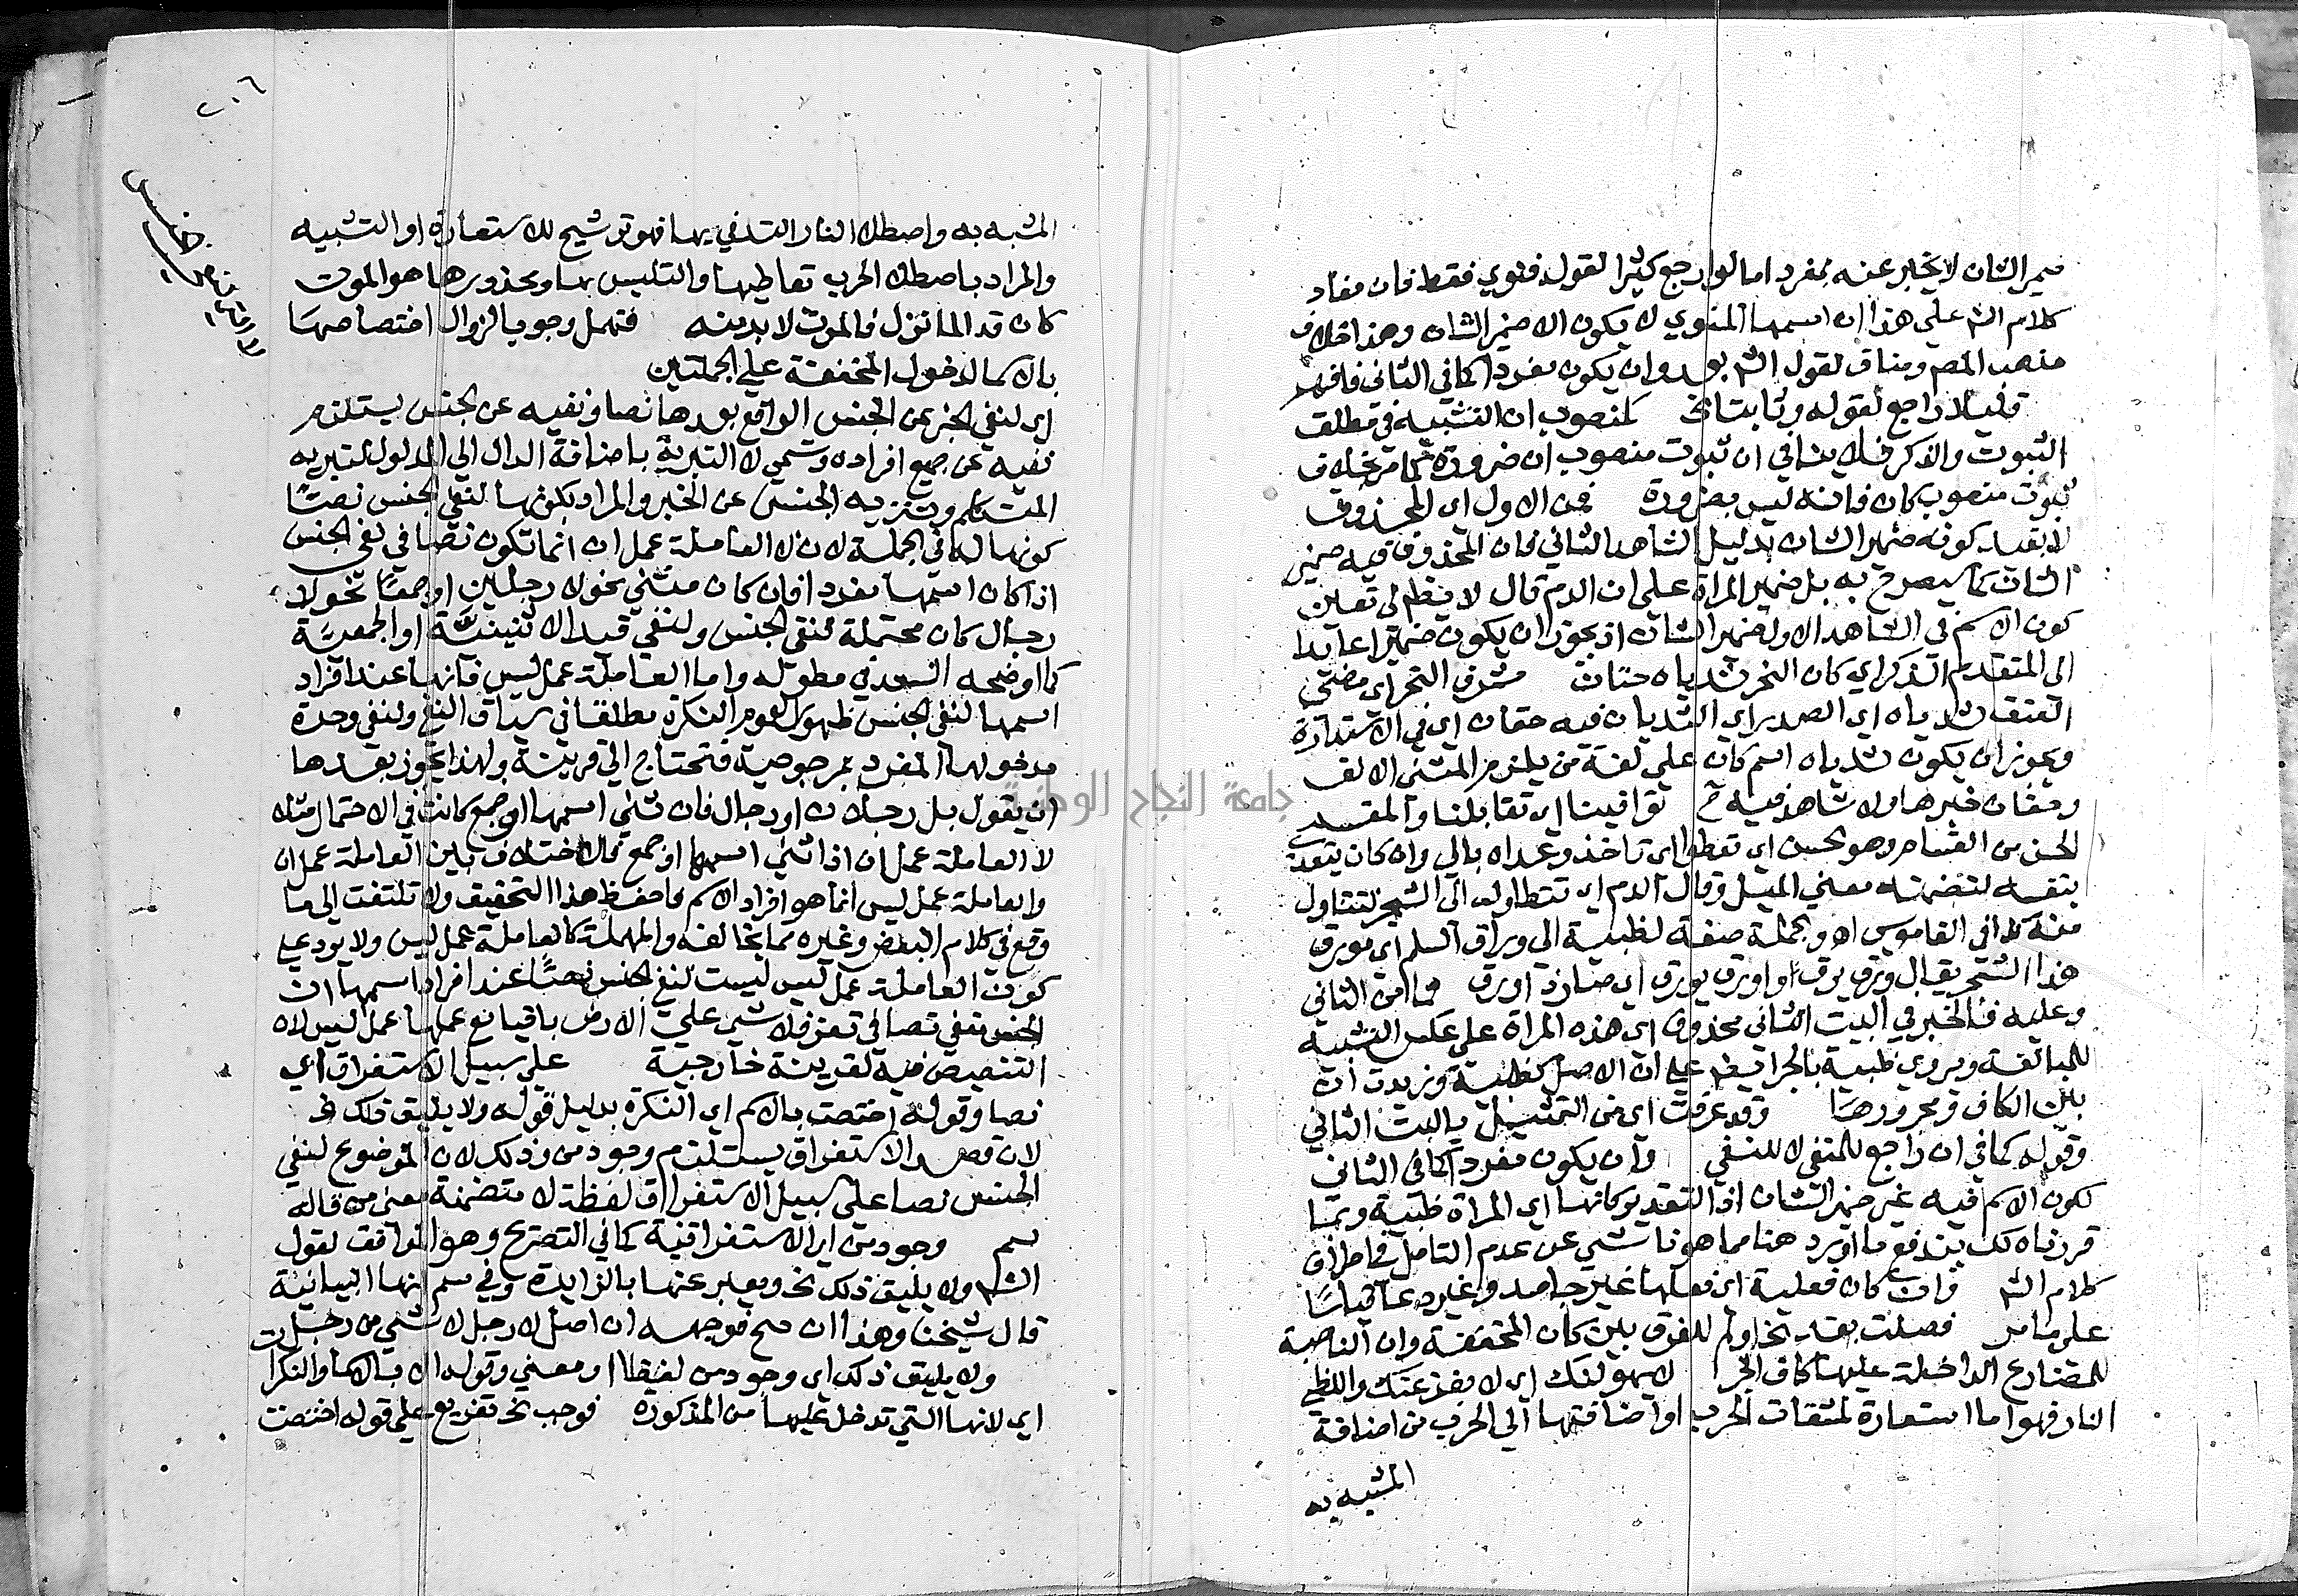 ضمير الشان لا يخبر عنه بمفرد اما لو ارجع كثيرا لقول فنوي فقط فان مفاد
كلام الش على هذا ان اسمها المنوي لا يكون الا ضمير الشان وهذا خلاف
مذهب المص ومناف لقول الش بعد وان يكون مفردا كما في الثاني فافهم
قليلا راجع لقوله وثابتا الخ كمنصوب ان التشبيه في مطلق
الثبوت والذكر فلا ينافي ان ثبوت منصوب ان ضرورة كما مر بخلاف
ثبوت منصوب كان فانه ليس بضرورة فمن الاول اي المحذوف
لا بقيد كونه ضمير الشان بدليل الشاهد الثاني فان المحذوف فيه ضمير
الشان كما سيصرح به بل ضمير المراة على ان الدم قال لا يظهر لي تعين
كون الاسم في الشاهد الاول ضمير الشان اذ يجوز ان يكون ضميرا عائدا
الى المتقدم الذكر اي كان النحر ثدياه حقان مشرق النحر اي مضيء
العنق ثدياه اي الصدر اي الثديان فيه حقان اي في الاستدارة
ويجوز ان يكون ثدياه اسم كان على لغة من يلزم المثنى الالف
وحقان خبرها ولا شاهد فيه ح توافينا اي تقابلنا والمقسم
الحسن من القسام وهو الحسن اي تعطو اي تاخذ وعداه بالى وان كان يتعدى
بنفسه لتضمنه معنى الميل وقال الدم اي تتطاول الى الشجر لتتناول
منه كذا في القاموس اه والجملة صفة لظبية الى وراق السلم اي مورق
هذا الشجر يقال ورق يرق او اورق يورق اي صار ذا ورق فما من الثاني
وعليه فالخبر في البيت الثاني محذوف اي هذه المراة على عكس التشبيه
للمبالغة ويروى ظبية بالجر ايضا على ان الاصل كظبية وزيدت ان
بين الكاف ومجرورها وقد عرفت اي من التمثيل بالبيت الثاني
وقوله كما في ان راجع للمنفي لا للنفي وان يكون مفردا كما في الثاني
لكون الاسم فيه غير ضمير الشان اذ التقدير كانها اي المراة ظبية وبما
قررناه لك يندفع ما اورد هنا مما هو ناشي عن عدم التامل في اطراف
كلام الش وان كان فعلية اي فعلها غير جامد وغير دعا قياسا
على ما مر فصلت بقد الخ او لم للفرق بين كان المخففة وان الناصبة
للمضارع الداخلة عليها كاف الجر لا يهولنك اي لا يفزعنك واللظى
النار فهو اما استعارة لمشقات الحرب او اضافتها الى الحرب من اضافة
المشبه به
٢٠٦
المشبه به واصطلا النار التدفي بها فهو ترشيح للاستعارة او التشبيه
والمراد باصطلا الحرب تعاطيها والتلبس بها ومحذورها هو الموت
كان قد الما نزل فالموت لا بد منه فتهمل وجوبا لزوال اختصاصها
بالاسما لدخول المخففة على الجملتين
اي لنفي الخبر عن الجنس الواقع بعدها نصا ونفيه عن الجنس يستلزم
نفيه عن جميع افراده وتسمى لا التبرية باضافة الدال الى المدلول لتبريه
المتكلم وتنزيه الجنس عن الخبر والمراد بكونها لنفي الجنس نصا
كونها له في الجملة لان لا العاملة عمل ان انما تكون نصا في نفي الجنس
اذا كان اسمها مفردا فان كان مثنى نحو لا رجلين او جمعا نحو لا
رجال كان محتملة لنفي الجنس ولنفي قيد الاثنينية او الجمعية
كما اوضحه السعد في مطوله واما العاملة عمل ليس فانها عند افراد
اسمها لنفي الجنس ظهورا لعموم النكرة مطلقا في سياق النفي ولنفي وحدة
مدخولها المفرد بمرجوحية فتحتاج الى قرينة ولهذا يجوز بعدها
ان يقول بل رجلان او رجال فان ثني اسمها او جمع كانت في الاحتمال مثل
لا العاملة عمل ان اذا ثني اسمها او جمع فالاختلاف بين العاملة عمل ان
والعاملة عمل ليس انما هو افراد الاسم فاحفظ هذا التحقيق ولا تلتفت الى ما
وقع في كلام البعض وغيره مما يخالفه والمهملة كالعاملة عمل ليس ولا يرد على
كون العاملة عمل ليس ليست لنفي الجنس نصا عند افراد اسمها ان
الجنس منفي نصا في تعز فلا شيء على الارض باقيا مع عملها عمل ليس لان
التنصيص فيه لقرينة خارجية على سبيل الاستغراق اي
نصا وقوله اختصت بالاسم اي النكرة بدليل قوله ولا يليق ذلك الخ
لان قصد الاستغراق يستلزم وجود من وذلك لان الموضوع لنفي
الجنس نصا على سبيل الاستغراق لفظة لا متضمنة معنى من قاله
سم وجود من اي الاستغراقية كما في التصريح وهو الموافق لقول
الش ولا يليق ذلك الخ ويعبر عنها بالزايدة وفي سم انها البيانية
قال شيخنا وهذا ان صح فوجهه ان اصل لا رجل لا شيء من رجل
ولا يليق ذلك اي وجود من لفظا او معنى وقوله الا بالاسما النكرات
اي لانها التي تدخل عليها من المذكورة فوجب الخ تفريع على قوله اختصت
جامعة النجاح الوطنية